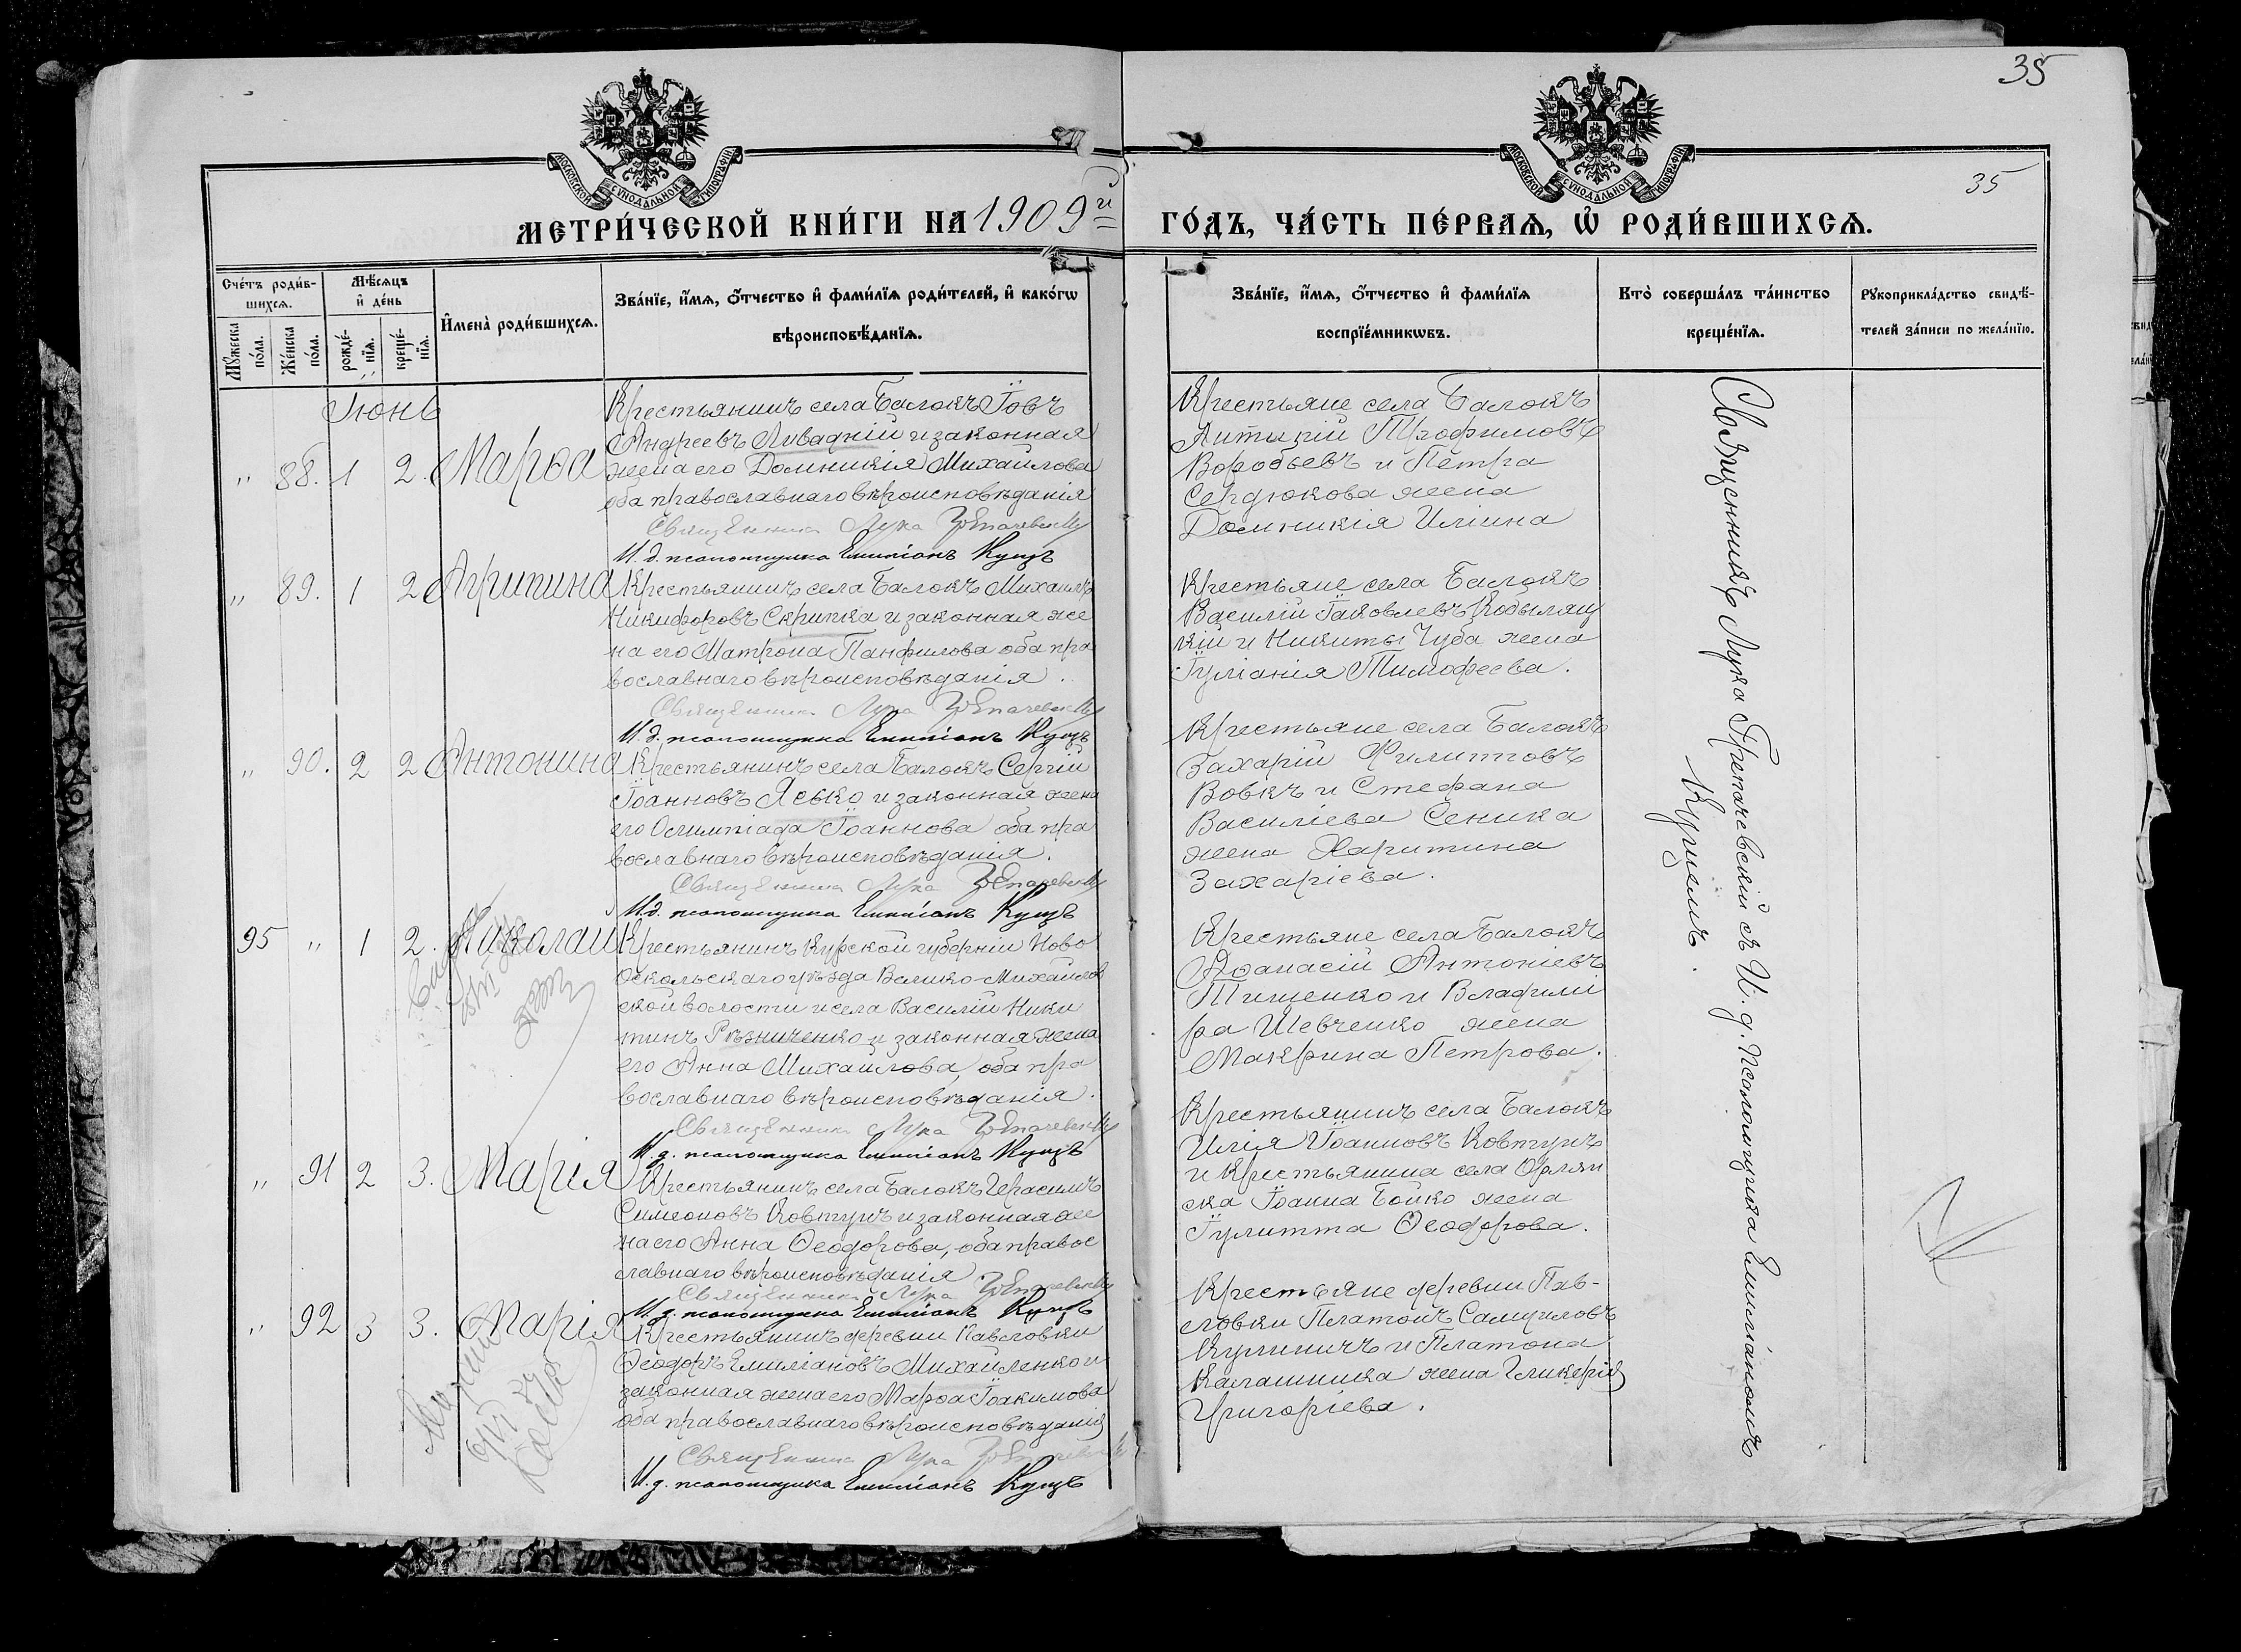 35
35
МОСКОВСКОЙ СУНОДАЛЬНОЙ ТИПОГРАФІИ
МОСКОВСКОЙ СУНОДАЛЬНОЙ ТИПОГРАФІИ
МЕТРИ́ЧЕСКОЙ КНИ́ГИ НА 1909й ГО́ДЪ, ЧА́СТЬ ПЕ́РВАѦ, Ѡ҆ РОДИ́ВШИХСѦ.
Сче́тъ роди́в-
шихсѧ.
Мꙋ́жеска по́ла.
Же́нска по́ла.
Мѣ́сѧцъ
и҆ де́нь
рожде́-
нїѧ.
креще́-
нїѧ.
И҆мена̀ роди́вшихсѧ.
Зва́нїе, и҆́мѧ, ѻ҆́тчество и҆ фами́лїѧ роди́телей, и҆ како́гѡ
вѣроисповѣ́данїѧ.
Зва́нїе, и҆́мѧ, ѻ҆́тчество и҆ фами́лїѧ
воспрїе́мникѡвъ.
Кто̀ соверша́лъ та́инство
креще́нїѧ.
Рꙋкоприкла́дство свидѣ́-
телей за́писи по жела́нїю.
Іюнь
" 88. 1 2. Марѳа
Крестьянинъ села Балокъ Іовъ
Андреевъ Ливадній и законная
жена его Домникія Михайлова
оба православнаго вѣроисповѣданія
Священникъ Лука Грепачевскій
И. д. псаломщика Емиліанъ Куцъ
Крестьяне села Балокъ
Трофимовъ
Воробьевъ и Петра
Сердюкова жена
Домникія Иліина
" 89. 1 2 Агрипина
Крестьянинъ села Балокъ Михаилъ
Никифоровъ Скрипка и законная же
на его Матрона Панфилова оба пра
вославнаго вѣроисповѣданія.
Священникъ Лука Грепачевскій
И. д. псаломщика Емиліанъ Куцъ
Крестьяне села Балокъ
Василій Іаковлевъ Кобыляц
кій и Никиты Чуба жена
Іуліанія Тимофеева.
" 90. 2 2 Антонина
Крестьянинъ села Балокъ Сергій
Іоанновъ Ясько и законная жена
его Олимпіада Іоаннова оба пра
вославнаго вѣроисповѣданія.
Священникъ Лука Грепачевскій
И. д. псаломщика Емиліанъ Куцъ
Крестьяне села Балокъ
Захарій Филипповъ
Вовкъ и Стефана
Василіева Сеника
жена Харитина
Захаріева.
95 " 1 2. Николай
Крестьянинъ Курской губерніи Ново
Оскольскаго уѣзда Велико-Михайлов
ской волости и села Василій Ники
тинъ Рѣзниченко и законная жена
его Анна Михайлова, оба пра
вославнаго вѣроисповѣданія.
Священникъ Лука Грепачевскій
И. д. псаломщика Емиліанъ Куцъ
Крестьяне села Балокъ
Аѳанасій Антоніевъ
Тищенко и Владими
ра Шевченко жена
Макрина Петрова.
" 91 2 3. Марія
Крестьянинъ села Балокъ Герасимъ
Симеоновъ Ковтунъ и законная же
на его Анна Ѳеодорова, оба правос
лавнаго вѣроисповѣданія
Священникъ Лука Грепачевскій
И. д. псаломщика Емиліанъ Куцъ
Крестьянинъ села Балокъ
Илія Іоанновъ Ковтунъ
и Крестьянина села Орлян
ска Іоанна Бойко жена
Іулитта Ѳеодорова.
" 92 3 3. Марія
Крестьянинъ деревни Павловки
Ѳеодоръ Емиліановъ Михайленко и
законная жена его Марѳа Іоакимова
оба православнаго вѣроисповѣданія
Священникъ Лука Грепачевскій
И. д. псаломщика Емиліанъ Куцъ
Крестьяне деревни Пав-
ловки Платонъ Самуиловъ
Кулиничъ и Платона
Калашника жена Гликерія
Григоріева.
Священникъ Лука Грепачевскій съ И. д. псаломщика Емиліаномъ
Куцемъ.